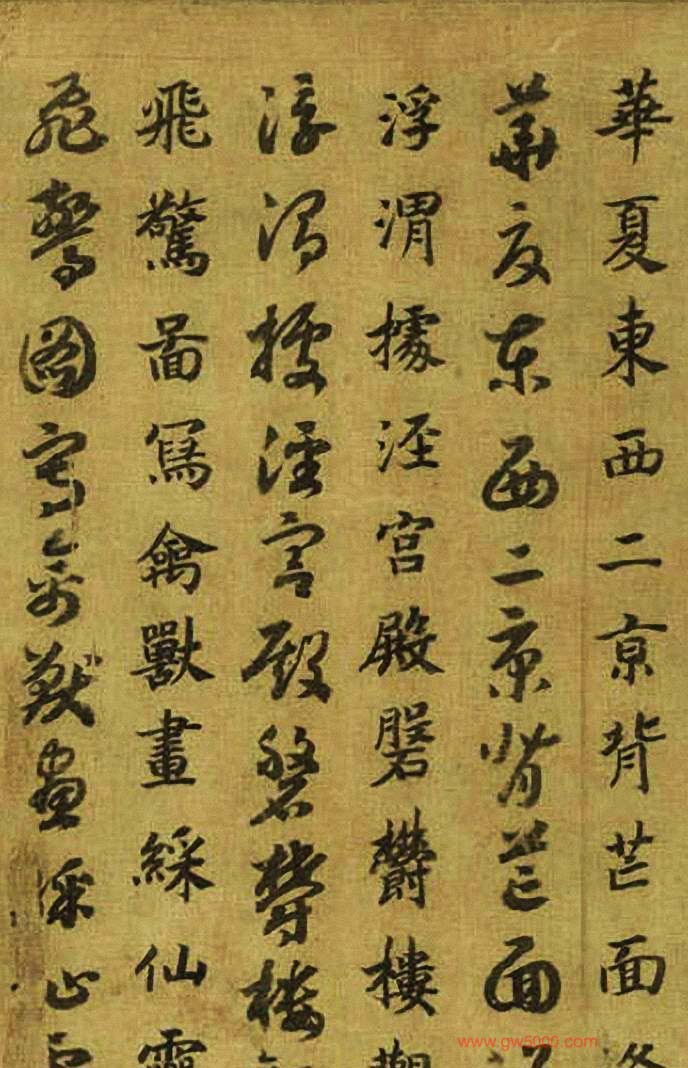 華夏東西二京背芒面洛
華夏東西二京背芒面洛
浮渭據涇宮殿磐欝樓觀
浮渭據涇宮殿磐欝樓觀
飛驚啚寫禽獸畫綵仙靈
飛驚圖寫禽獸畫綵仙靈
www.gw5000.com